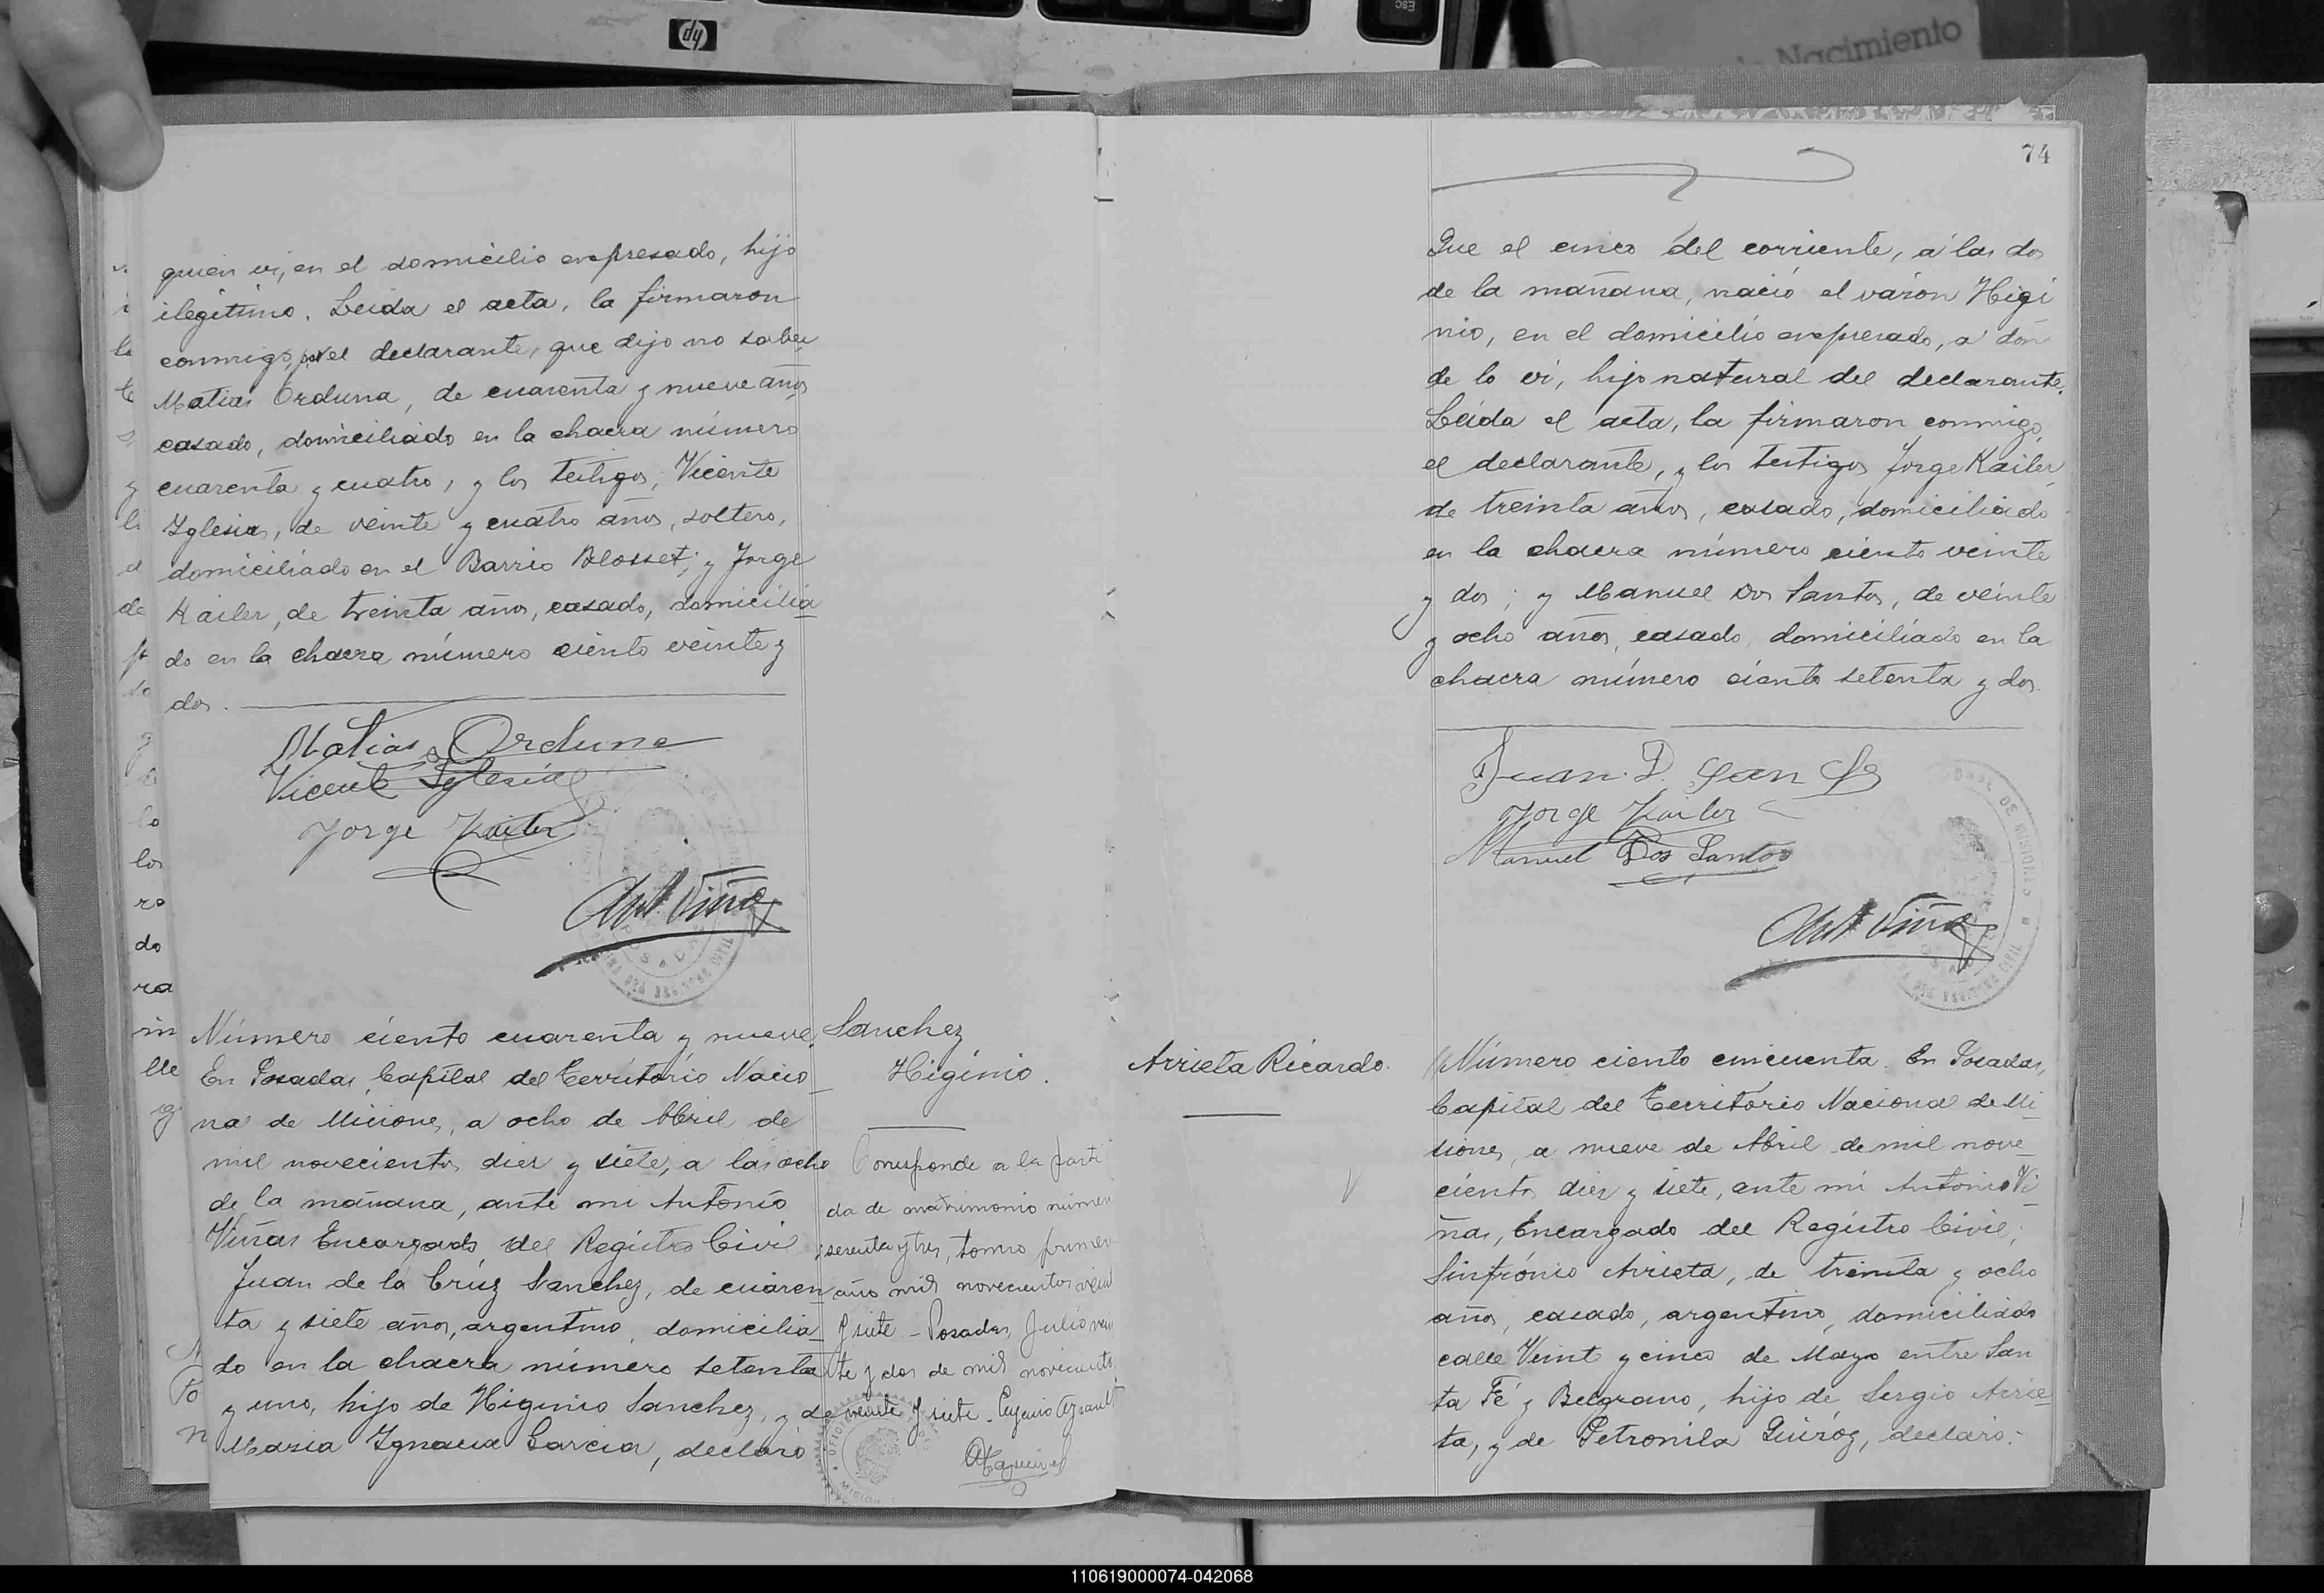 hp
ESC
Nacimiento
quien vi, en el domicilio expresado, hijo
ilegítimo. Leida el acta, la firmaron
conmigo, por el declarante, que dijo no saber
Matias Orduna, de cuarenta y nueve años
casado, domiciliado en la chacra número
cuarenta y cuatro, y los testigos, Vicente
Iglesias, de veinte y cuatro años, soltero,
domiciliado en el Barrio Blosset; y Jorge
Kailer, de treinta años, casado, domicilia
do en la chacra número ciento veinte y
dos.
Matias Orduna
Vicente Iglesia
Jorge Kailer
Ant Viña
Número ciento cuarenta y nueve.
En Posadas, Capital del Territorio Nacio
na de Misiones, a ocho de Abril de
mil novecientos diez y siete, a las ocho
de la mañana, ante mi Antonio
Viñas Encargado del Registro Civil;
Juan de la Crúz Sanchez, de cuaren
ta y siete años, argentino, domicilia
do en la chacra número setenta
y uno, hijo de Higinio Sanchez, y de
Maria Ygnacia Garcia, declaró
Sanchez
Higinio.
Corresponde a la parti
da de matrimonio númer
sesenta y tres, tomo primer
año mil novecientos vein
y siete - Posadas, Julio vein
te y dos de mil novecientos
veinte y siete.
74
Que el cinco del corriente, a las dos
de la mañana, nació el varon Higi
nio, en el domicilio expresado, a don
de lo vi, hijo natural del declarante.
Leida el acta, la firmaron conmigo,
el declarante, y los testigos Jorge Kailer,
de treinta años, casado, domiciliado
en la chacra número ciento veinte
y dos; y Manuel Dos Santos, de veinte
y ocho años, casado, domiciliado en la
chacra número ciento setenta y dos.
Juan. D.
Jorge Kailer
Manuel Dos Santos
Ant Viña
Arrieta Ricardo.
Número ciento cincuenta. En Posadas,
Capital del Territorio Nacional de Mi
siones, a nueve de Abril de mil nove
cientos diez y siete, ante mi Antonio Vi
ñas, Encargado del Registro Civil;
Sinfrónio Arrieta, de treinta y ocho
años, casado, argentino, domiciliado
calle Veint y cinco de Mayo entre San
ta Fé y Belgrano, hijo de Sergio Arrie
ta, y de Petronila Quiróz, declaró:
110619000074-042068